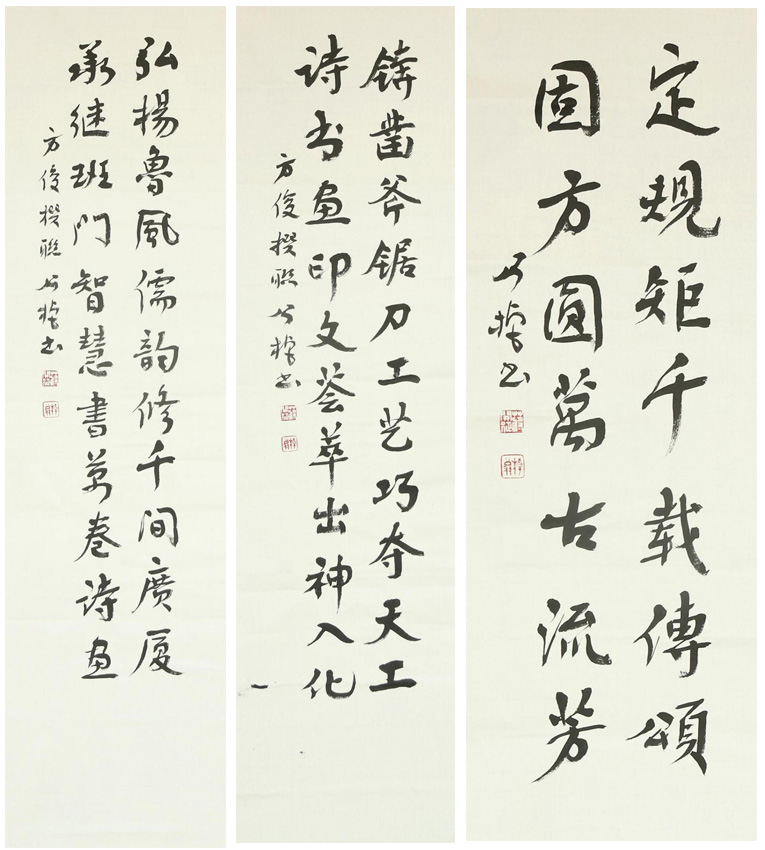 定規矩千载傳頌
固方圓萬古流芳
书
铸凿斧锯刀工艺巧夺天工
诗书画印文荟萃出神入化
方俊撰聯 书
弘楊魯風儒韵修千间廣厦
承继班门智慧書萬卷诗画
方俊撰聯 书